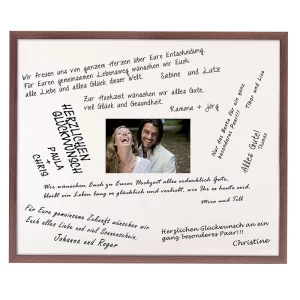 Wir freuen uns von ganzem Herzen über Eure Entscheidung.
Für Euren gemeinsamen Lebensweg wünschen wir Euch
alle Liebe und alles Glück dieser Welt.
Sabine und Lutz
Zur Hochzeit wünschen wir alles Gute,
viel Glück und Gesundheit.
Ramona + Jörg
HERZLICHEN
GLÜCKWUNSCH
PAULA
CHRIS
Nur das Beste für ein ganz
besonderes Paar!!!
Tibor und Lisa
Alles Gute!
Thomas
Wir wünschen Euch zu Eurer Hochzeit alles erdenklich Gute,
bleibt ein Leben lang so glücklich und verliebt, wie Ihr es heute seid.
Mira und Till
Für Eure gemeinsame Zukunft wünschen wir
Euch alles Liebe und viel Sonnenschein.
Johanna und Roger
Herzlichen Glückwunsch an ein
ganz besonderes Paar!!!
Christine